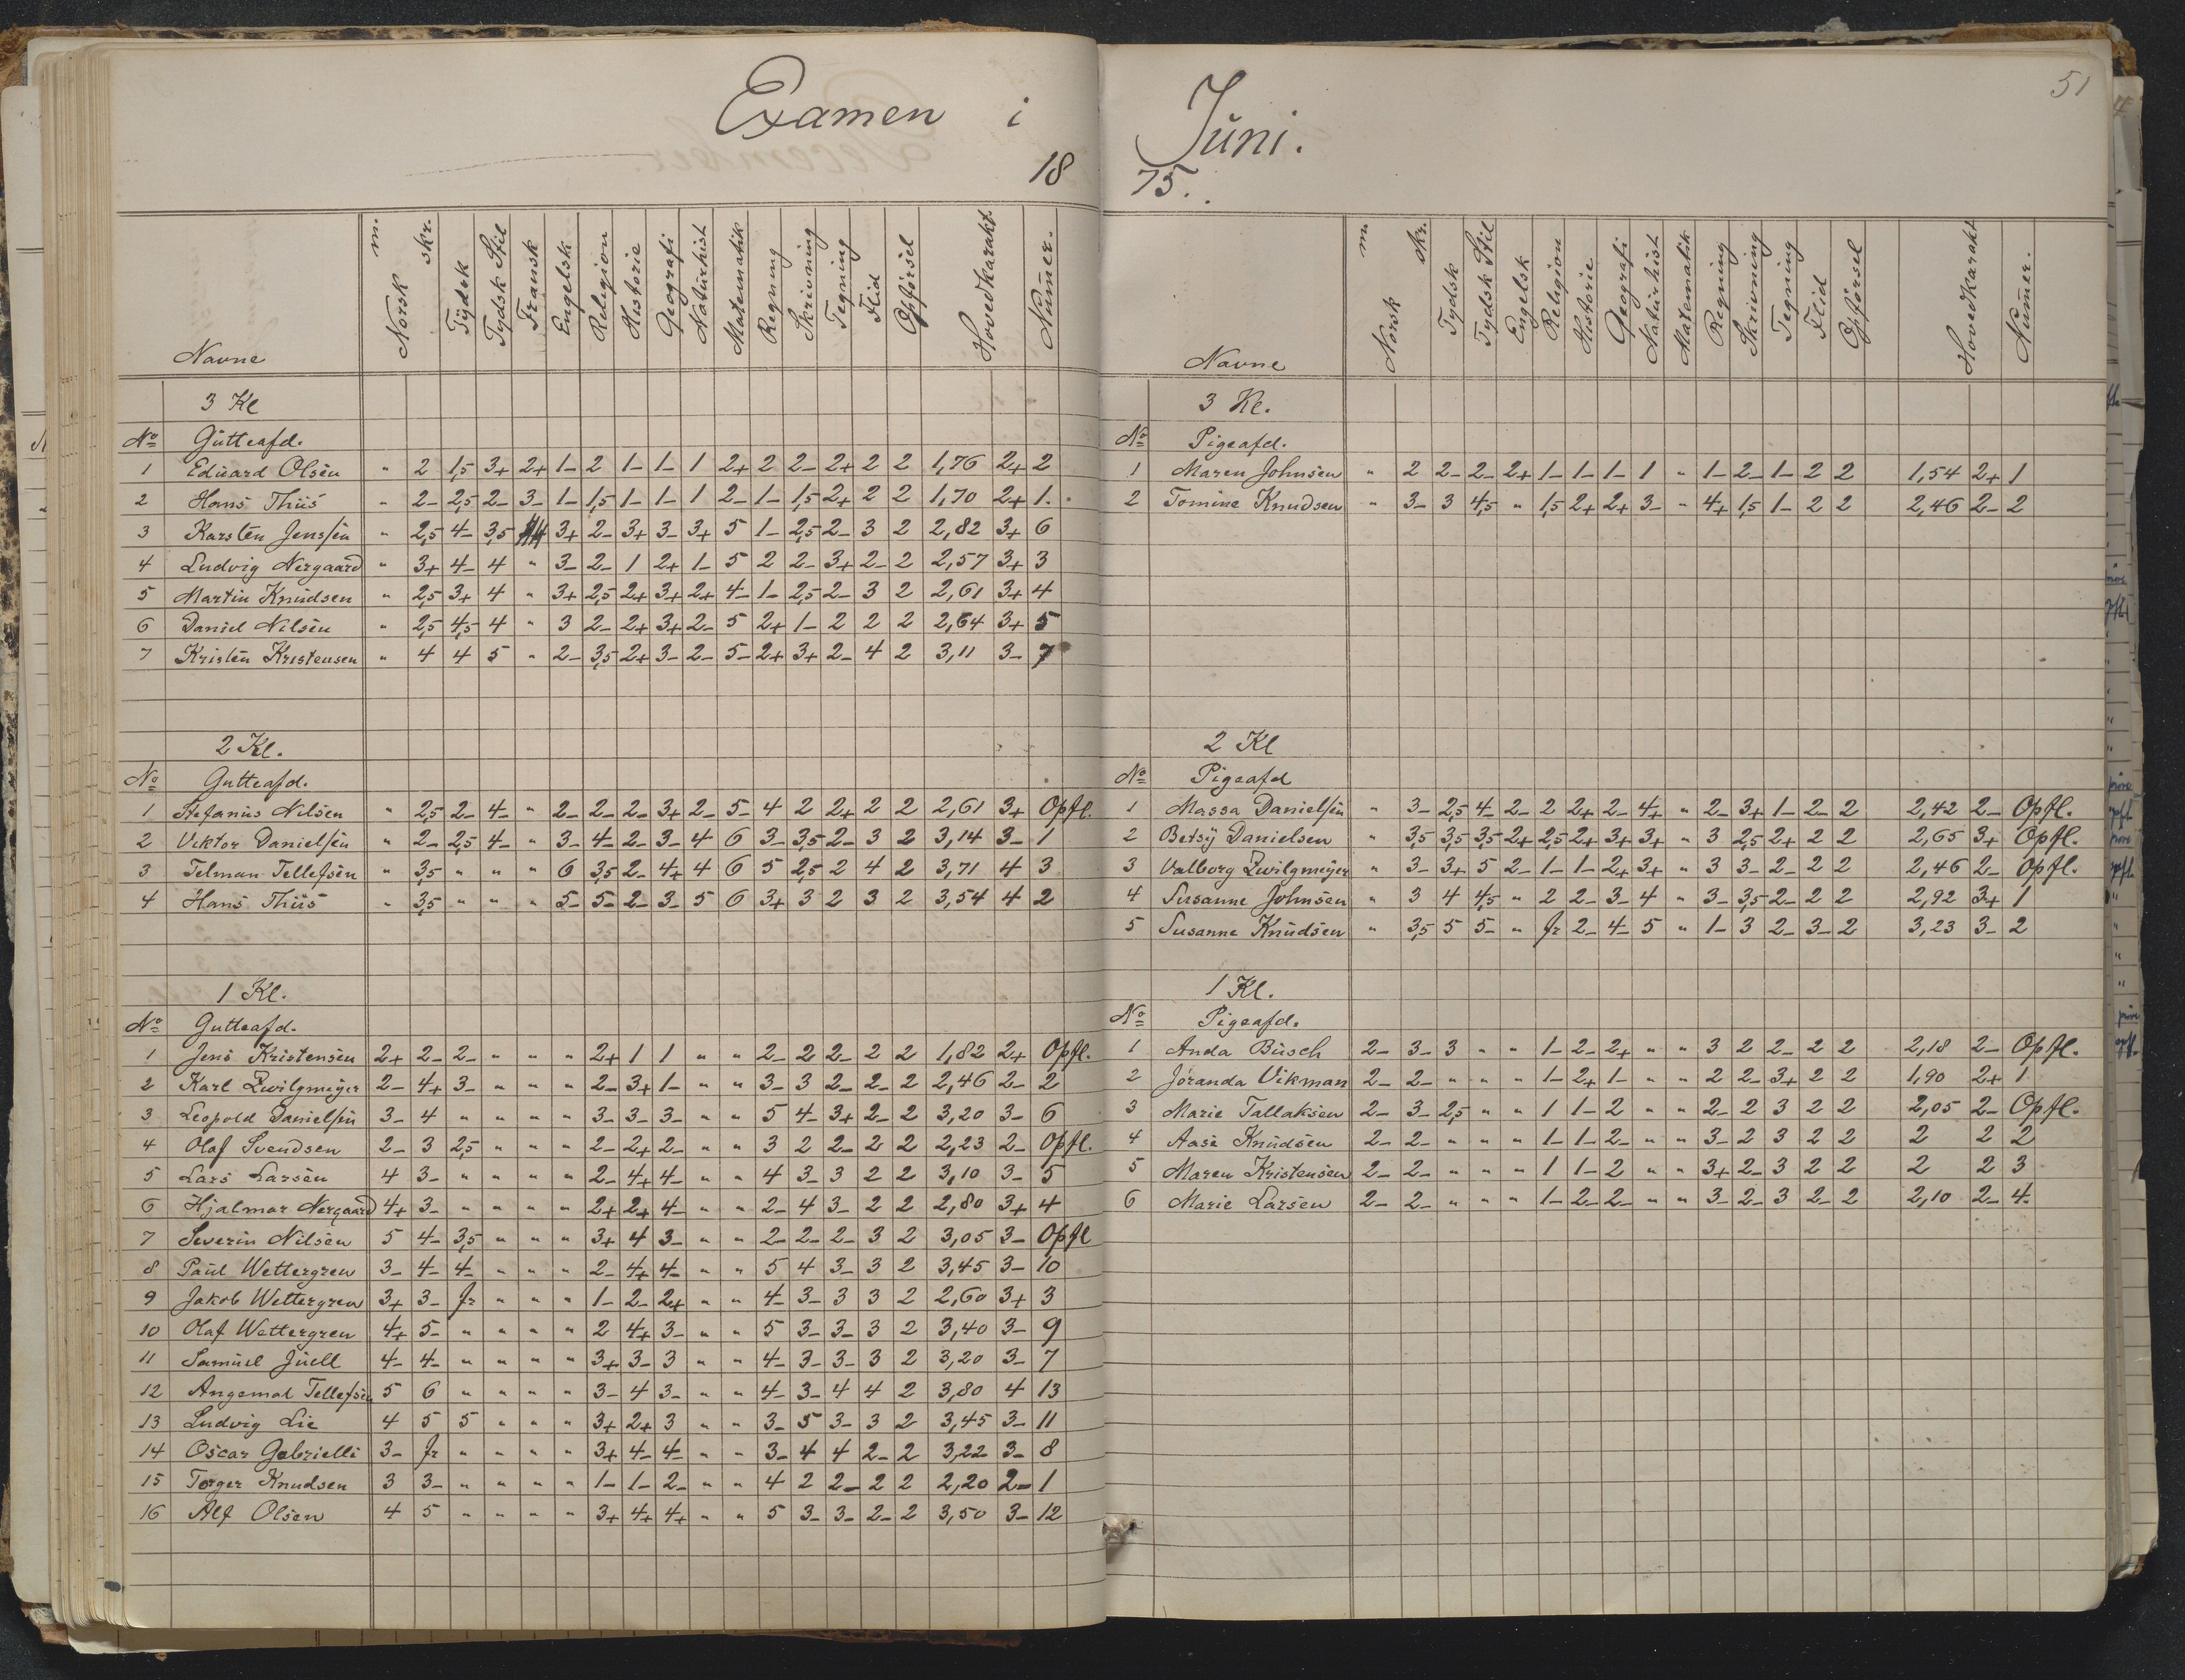 Examen i
18
Navne Norsk m. skr. Tydsk Tydsk Stil Fransk Engelsk Religion Historie Geografi Naturhist Matematik Regning Skrivning Tegning Flid Opførsel Hovedkarakt. Nummer.
3 Kl
No Gutteafd.
1 Eduard Olsen " 2 1,5 3+ 2+ 1- 2 1- 1- 1 2+ 2 2- 2+ 2 2 1,76 2+ 2
2 Hans Thiis " 2- 2,5 2- 3- 1- 1,5 1- 1- 1 2- 1- 1,5 2+ 2 2 1,70 2+ 1.
3 Karsten Jenssen " 2,5 4- 3,5 3+ 2- 3+ 3- 3+ 5 1- 2,5 2- 3 2 2,82 3+ 6
4 Ludvig Nergaard " 3+ 4- 4 " 3- 2- 1 2+ 1- 5 2 2- 3+ 2- 2 2,57 3+ 3
5 Martin Knudsen " 2,5 3+ 4 " 3+ 2,5 2+ 3+ 2+ 4- 1- 2,5 2- 3 2 2,61 3+ 4
6 Daniel Nilsen " 2,5 4,5 4 " 3 2- 2+ 3+ 2- 5 2+ 1- 2 2 2 2,64 3+ 5
7 Kristen Kristensen " 4 4 5 " 2- 3,5 2+ 3- 2- 5- 2+ 3+ 2- 4 2 3,11 3- 7
2 Kl.
No Gutteafd.
1 Stefanus Nilsen " 2,5 2- 4- " 2- 2- 2- 3+ 2- 5- 4 2 2+ 2 2 2,61 3+ Opfl.
2 Viktor Danielsen " 2- 2,5 4- " 3- 4- 2- 3- 4 6 3- 3,5 2- 3 2 3,14 3- 1
3 Telman Tellefsen " 3,5 " " " 6 3,5 2- 4+ 4 6 5 2,5 2 4 2 3,71 4 3
4 Hans Thiis " 3,5 " " " 5- 5- 2- 3- 5 6 3+ 3 2 3 2 3,54 4 2
1 Kl.
No Gutteafd.
1 Jens Kristensen 2+ 2- 2- " " " 2+ 1 1 " " 2- 2 2- 2 2 1,82 2+ Opfl.
2 Karl Zwilgmeyer 2- 4+ 3- " " " 2- 3+ 1- " " 3- 3 2- 2- 2 2,46 2- 2
3 Leopold Danielsen 3- 4 " " " " 3- 3- 3- " " 5 4- 3+ 2- 2 3,20 3- 6
4 Olaf Svendsen 2- 3 2,5 " " " 2- 2+ 2- " " 3 2 2- 2 2 2,23 2- Opfl.
5 Lars Larsen 4 3- " " " " 2- 4+ 4- " " 4 3- 3 2 2 3,10 3- 5
6 Hjalmar Nergaard 4+ 3- " " " " 2+ 2+ 4- " " 2- 4 3- 2 2 2,80 3+ 4
7 Severin Nilsen 5 4- 3,5 " " " 3+ 4 3- " " 2- 2- 2- 3 2 3,05 3- Opfl
8 Paul Wettergren 3- 4- 4- " " " 2- 4+ 4- " " 5 4 3- 3 2 3,45 3- 10
9 Jakob Wettergren 3+ 3- fr " " " 1- 2- 2+ " " 4- 3- 3 3 2 2,60 3+ 3
10 Olaf Wettergren 4+ 5- " " " " 2 4+ 3- " " 5 3- 3- 3 2 3,40 3- 9
11 Samuel Juell 4- 4- " " " " 3+ 3- 3 " " 4- 3- 3- 3 2 3,20 3- 7
12 Angemal Tellefsen 5 6 " " " " 3- 4 3- " " 4- 3- 4 4 2 3,80 4 13
13 Ludvig Lie 4 5 5 " " " 3+ 2+ 3 " " 3- 5 3- 3 2 3,45 3- 11
14 Oscar Gabrielli 3- fr " " " " 3+ 4- 4- " " 3- 4 4 2- 2 3,22 3- 8
15 Torger Knudsen 3 3- " " " " 1- 1- 2- " " 4 2 2- 2 2 2,20 2- 1
16 Alf Olsen 4 5 " " " " 3+ 4+ 4+ " " 5 3- 3- 2- 2 3,50 3- 12
51
Juni.
75.
Navne Norsk m. skr. Tydsk Tydsk Stil Engelsk Religion Historie Geografi Naturhist Matematik Regning Skrivning Tegning Flid Opførsel Hovedkarakt Nummer.
3 Kl.
No Pigeafd.
1 Maren Johnsen " 2 2- 2- 2+ 1- 1- 1- 1 " 1- 2- 1- 2 2 1,54 2+ 1
2 Tomine Knudsen " 3- 3 4,5 " 1,5 2+ 2+ 3- " 4+ 1,5 1- 2 2 2,46 2- 2
2 Kl
No Pigeafd
1 Massa Danielsen " 3- 2,5 4- 2- 2 2+ 2- 4+ " 2- 3+ 1- 2- 2 2,42 2- Opfl.
2 Betsy Danielsen " 3,5 3,5 3,5 2+ 2,5 2+ 3+ 3+ " 3 2,5 2+ 2 2 2,65 3+ Opfl.
3 Valborg Zwilgmeyer " 3- 3+ 5 2- 1- 1- 2+ 3+ " 3 3- 2- 2 2 2,46 2- Opfl.
4 Susanne Johnsen " 3 4 4,5 " 2 2- 3- 4 " 3- 3,5 2- 2 2 2,92 3+ 1
5 Susanne Knudsen " 3,5 5 5- " fr 2- 4- 5 " 1- 3 2- 3- 2 3,23 3- 2
1 Kl.
No Pigeafd.
1 Anda Busch 2- 3- 3 " " 1- 2- 2+ " " 3 2 2- 2 2 2,18 2- Opfl.
2 Jøranda Vikman 2- 2- " " " 1- 2+ 1- " " 2 2- 3+ 2 2 1,90 2+ 1
3 Marie Tallaksen 2- 3- 2,5 " " 1 1- 2 " " 2- 2 3 2 2 2,05 2- Opfl.
4 Aase Knudsen 2- 2- " " " 1- 1- 2- " " 3- 2 3 2 2 2 2 2
5 Maren Kristensen 2- 2- " " " 1 1- 2 " " 3+ 2- 3 2 2 2 2 3
6 Marie Larsen 2- 2- " " " 1- 2- 2- " " 3- 2- 3 2- 2 2,10 2- 4.